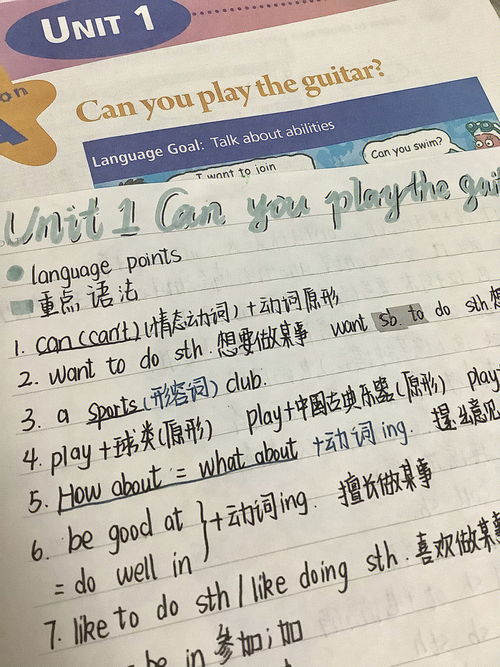 UNIT 1
on
A
Can you play the guitar?
Language Goal: Talk about abilities
I want to join
Can you swim?
Unit 1 Can you play the gui
language points
重点语法
1. can (can't) (情态动词) + 动词原形
2. want to do sth. 想要做某事 want sb. to do sth. 想
3. a sports (形容词) club.
4. play + 球类 (原形) play + 中国古典乐器 (原形) play
5. How about = what about + 动词 ing. 提出意见
6. be good at
= do well in } + 动词 ing. 擅长做某事
7. like to do sth / like doing sth. 喜欢做某事
be in 参加; 加